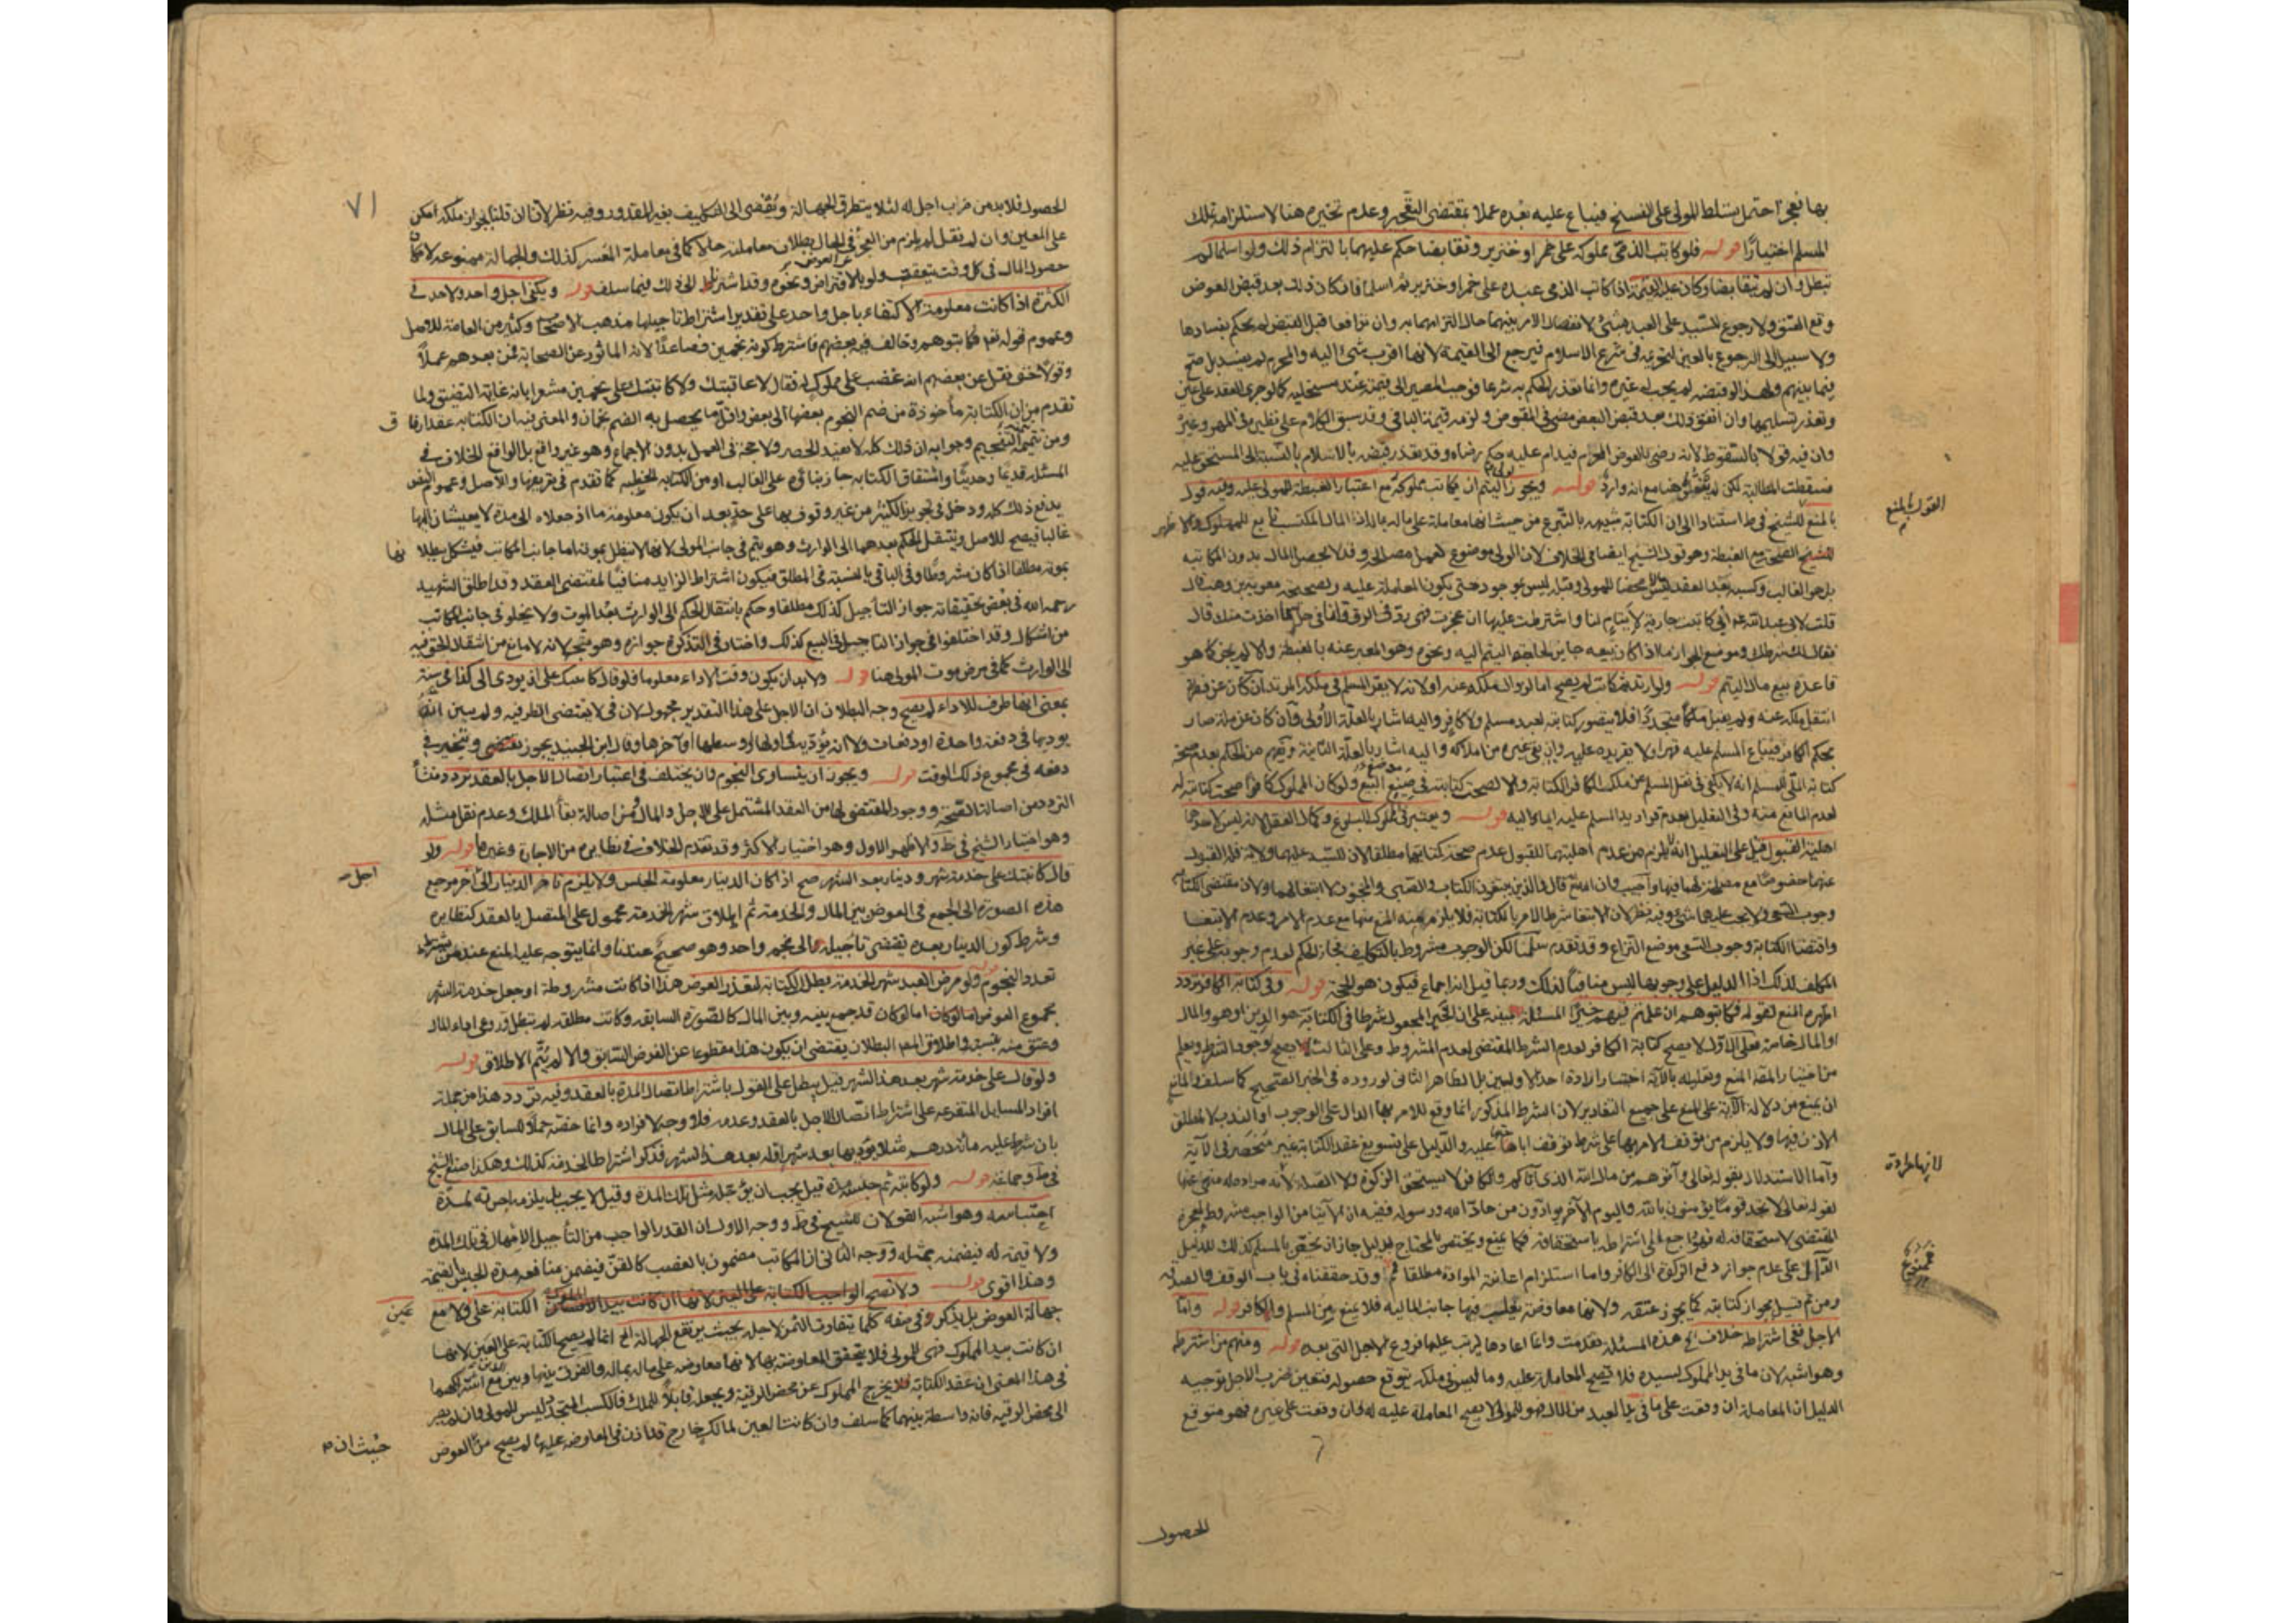 بها فعجز احتمل تسلط المولى على الفسخ فيباع عليه بعده عملا بمقتضى التعجيز وعدم تخيره هنا لاستلزامه تملك
المسلم اختيارًا قوله فلو كاتب الذمي مملوكه على خمر او خنزير وتقابضا حكم عليهما بالتزام ذلك ولو اسلما لم
تبطل وان لم يتقابضا وكان عليه القيمة اذا كاتب الذمي عبده على خمر او خنزير ثم اسلما فان كان ذلك بعد قبض العوض
وقع العتق ولا رجوع للسيد على العبد بشئ لانفصال الامر بينهما حال التزامهما به وان ترافعا قبل القبض لم يحكم بفسادها
ولا سبيل الى الرجوع بالعين لتحريمه في شرع الاسلام فيرجع الى القيمة لانها اقرب شئ اليه
فيما بينهم ولهذا لو قبضه لم يجب له غيره وانما تعذر الحكم به شرعا فوجب المصير الى قيمته عند مستحليه كما لو جرى العقد على عين
وتعذر تسليمها وان اتفق ذلك بعد قبض البعض مضى في المقبوض ولزمه قيمة الباقي وقد سبق الكلام على نظيره في المهر وغيره
وان فيه قولا بالسقوط لانه رضى بالعوض المحرم فيدام عليه حكم رضاه وقد تعذر قبضه بالاسلام بالنسبة الى المستحق عليه
فسقطت المطالبة لكن لم ينقل هنا مع انه وارد قوله ويجوز لولي اليتيم ان يكاتب مملوكه مع اعتبار الغبطة للمولى عليه وفيه قول
بالمنع للشيخ في ط استنادا الى ان الكتابة شبيهه بالتبرع من حيث انها معاملة على ماله بماله اذ المال المكتسب تابع للمملوك والاظهر
الصحة مع الغبطة وهو قول الشيخ ايضا في الخلاف لان الولي موضوع لعمل مصالحه وقد لا يحصل المال بدون المكاتبه
بل هو الغالب وكسبه بعد العقد ليس مالا محضا للمولى وقبله ليس بموجود حتى يكون المعاملة عليه ولصحيحة معوية بن وهب قال
قلت لابي عبد الله عم اني كاتبت جارية لايتام لنا واشترطت عليها ان عجزت فهي رد في الرق وانا في حل مما اخذت منك قال
فقال لك شرطك وموضع الجواز ما اذا كان بيعه جايز لحاجة اليتيم اليه ونحوه وهو المعبر عنه بالغبطة والا لم يجز كما هو
قاعدة بيع مال اليتيم قوله ولو ارتد ثم كاتب لم يصح اما لزوال ملكه عنه او لانه لا يقر المسلم في ملكه المرتد ان كان عن فطرة
انتقل ملكه عنه ولم يقبل ملكًا متجددًا فلا يتصور كتابته لعبد مسلم ولا كافر واليه اشار بالعلة الاولى وان كان عن ملة صار
بحكم الكافر فيباع المسلم عليه قهرا ولا تقر يده عليه وان بقي غيره من املاكه واليه اشار بالعلة الثانية ويفهم من الحكم بعدم صحة
لعدم المانع منه وفي التعليل بعدم قرار يد المسلم عليه ايماء اليه قوله ويعتبر في المملوك البلوغ وكمال العقل لانه ليس لاحدهما
اهلية القبول قيل على التعليل انه لا يلزم من عدم اهليتهما للقبول عدم صحة كتابتهما مطلقا لان للسيد عليهما ولاية فله القبول
وجوب السعي ولا يجب عليهما شئ وفيه نظر لان الابتغا شرط الامر بالكتابة فلا يلزم منه المنع منها مع عدم الامر وعدم الابتغا
واقتضا الكتابة وجوب السعي موضع النزاع وقد تقدم سلمنا لكن الوجوب مشروط بالتكليف فجاز الحكم لعدم وجوبه على غير
المكلف لذلك اذ الدليل على وجوبها ليس منافيا لذلك وربما قيل انه اجماع فيكون هو الحجة قوله وفي كتابة الكافر تردد
اظهره المنع لقوله فكاتبوهم ان علمتم فيهم خيرًا المسئلة مبنية على ان الخير المجعول شرطا في الكتابة هو الدين او هو والمال
او المال خاصة فعلى الاول لا يصح كتابة الكافر لعدم الشرط المقتضي لعدم المشروط وعلى الثالث يصح لوجود الشرط ويعلم
من اختيار المص المنع وتعليله بالآية اختيار ارادة احد الاولين بل الظاهر الثاني لوروده في الخبر الصحيح كما سلف والمانع
ان يمنع من دلالة الآية على المنع على جميع التقادير لان الشرط المذكور انما وقع للامر بها الدال على الوجوب او الندب لا لمطلق
الاذن فيها ولا يلزم من توقف الامر بها على شرط توقف اباحتها عليه والدليل على تسويغ عقد الكتابة غير منحصر في الآية
واما الاستدلال بقوله تعالى وآتوهم من مال الله الذي آتاكم والكافر لا يستحق الزكوة ولا الصدقة لانه موادة له منهي عنها
لقوله تعالى لا تجد قوما يؤمنون بالله واليوم الآخر يوادون من حاد الله ورسوله ففيه ان الايتا من الواجب مشروط بالعجز
المقتضي لاستحقاقه له فهو راجع الى اشتراطه باستحقاقه فكما يمنع ويختص بالمحتاج لدليل جاز ان يختص بالمسلم كذلك للدليل
الدال على عدم جواز دفع الزكوة الى الكافر واما استلزام اعانته الموادة مطلقا وقد حققناه في باب الوقف والصدقة
ومن ثم قيل بجواز كتابته كما يجوز عتقه ولانها معاوضة يغلب فيها جانب المالية فلا يمنع بين المسلم والكافر قوله واما
الاجل ففي اشتراطه خلاف الخ هذه المسئلة تقدمت وانما اعادها ليرتب عليها فروع الاجل التي بعد قوله ومنهم من اشترطه
وهو اشبه لان ما في يد المملوك لسيده فلا تصح المعاملة عليه وما ليس في ملكه يتوقع حصوله فتعين ضرب الاجل توجيه
الدليل ان المعاملة ان وقعت على ما في يد العبد من المال فهو للمولى لا يصح المعاملة عليه له وان وقعت على غيره فهو متوقع
القول بالمنع
ممنوع
الحصول
٧١
الحصول فلا بد من ضرب اجل له لئلا يتطرق الجهالة ويفضي الى التكليف بغير المقدور وفيه نظر لانا ان قلنا بجواز ملكه امكن
على المعين وان لم نقل لم يلزم من العجز في الحال بطلان معاملته حالا كما في معاملة المعسر كذلك والجهالة ممنوعة لامكان
حصول المال في كل وقت يتعقب العوض ولو بالاقتراض ونحوه وقد اشترط الى ذلك فيما سلف قوله ويكفي اجل واحد ولا حد في
الكثرة اذا كانت معلومة الاكتفاء باجل واحد على تقدير اشتراط تاجيلها مذهب الاصحاب وكثير من العامة للاصل
وعموم قوله تعالى فكاتبوهم وخالف فيه بعضهم فاشترط كونه نجمين فصاعدًا لانه الماثور عن الصحابة فمن بعدهم عملا
وقولا حتى نقل عن بعضهم انه غضب على مملوك له فقال لاعاقبنك ولاكاتبنك على نجمين مشعرا بانه غاية التضييق ولما
تقدم من ان الكتابة مأخوذة من ضم النجوم بعضها الى بعض واقل ما يحصل به الضم نجمان والمعنى فيه ان الكتابة عقد ارفاق
ومن تتمته التنجيم وجوابه ان ذلك كله لا يفيد الحصر ولا حجة في العمل بدون الاجماع وهو غير واقع بل الواقع الخلاف في
المسئلة قديما وحديثا واشتقاق الكتابة جاز بناؤه على الغالب او من الكتابة الخطية كما تقدم في تعريفها والاصل وعموم النص
يدفع ذلك كله ودخل في تجويز الكثير من غير وقوف بها على حد بعد ان يكون معلومة ما اذ جعلاه الى مدة لا يعيشان اليها
غالبا فيصح للاصل وينتقل الحكم بعدهما الى الوارث وهو يتم في جانب المولى لانها لا تبطل بموته اما جانب المكاتب فيشكل ببطلانها
بموته مطلقا اذا كان مشروطا وفي الباقي بالنسبة في المطلق فيكون اشتراط الزايد منافيا لمقتضى العقد وقد اطلق الشهيد
رحمه الله في بعض تحقيقاته جواز التأجيل كذلك مطلقا وحكم بانتقال الحكم الى الوارث بعد الموت ولا يخلو في جانب المكاتب
من اشكال وقد اختلفوا في جواز التاجيل في البيع كذلك واختار في التذكرة جوازه وهو متجه لانه لا مانع من انتقال الحق فيه
الى الوارث كما في مرض موت المولى هنا قوله ولا بد ان يكون وقت الاداء معلوما فلو قال كاتبتك على ان يودي الى كذا في سنة
بمعنى انها ظرف للاداء لم يصح وجه البطلان ان الاجل على هذا التقدير مجهول لان في لا يقتضي الظرفيه ولم يبين انه
يوديها في دفعة واحدة او دفعات ولا انه يؤديه في اولها او وسطها او آخرها وقال ابن الجنيد يجوز ويتخير في
دفعه في مجموع ذلك الوقت قوله ويجوز ان يتساوى النجوم وان يختلف في اعتبار اتصال الاجل بالعقد تردد منشأ
التردد من اصالة الصحة ووجود المقتضي لها من العقد المشتمل على الاجل والمال ومن اصالة بقاء الملك وعدم نقل مثله
وهو اختيار الشيخ في ط والاظهر الاول وهو اختيار الاكثر وقد تقدم الخلاف في نظايره من الاجارة وغيرها قوله ولو
قال كاتبتك على خدمة شهر ودينار بعد الشهر صح اذا كان الدينار معلومة الجنس ولا يلزم تاخر الدينار الى اجل آخر مرجع
هذه الصورة الى الجمع في العوض بين المال والخدمة ثم اطلاق شهر الخدمة محمول على المتصل بالعقد كنظايره
وشرط كون الدينار بعده يقتضي تأجيله الى نجم واحد وهو صحيح عندنا وانما يتوجه عليه المنع عند من يشترط
تعدد النجوم قوله ولو مرض العبد شهر الخدمة بطل الكتابة لتعذر العوض هذا اذا كانت مشروطة او جعل خدمة الشهر
مجموع العوض اما لو كان قد جمع بينه وبين المال كالصورة السابقة وكانت مطلقة لم تبطل وروعي اداء المال
وعتق منه بنسبته واطلاق المص البطلان يقتضي ان يكون هذا مقطوعا عن الفرض السابق والا لم يتم الاطلاق قوله
ولو قال على خدمة شهر بعد هذا الشهر قيل يبطل على القول باشتراط اتصال المدة بالعقد وفيه تردد هذا من جملة
افراد المسايل المتفرعة على اشتراط اتصال الاجل بالعقد وعدمه فلا وجه لافراده وانما خصه حملا للسابق على المال
بان شرط عليه مائة درهم مثلا يؤديها بعد شهر اوله بعد هذا الشهر فذكر اشتراط الخدمة كذلك وهكذا صنع الشيخ
في ط وجماعة قوله ولو كاتبه ثم حبسه مدة قيل يجب ان يؤجله مثل تلك المدة وقيل لا يجب بل يلزمه اجرته لمدة
احتباسه وهو اشبه القولان للشيخ في ط ووجه الاول ان القدر الواجب من التأجيل الامهال في تلك المدة
ولا قيمة له فيضمنه بمثله ووجه الثاني ان المكاتب مضمون بالغصب كالقن فيضمن منافعه مدة الحبس بالقيمة
وهذا اقوى قوله ولا تصح الكتابة على عين الكتابة على ولا مع
جهالة العوض بل يذكر في وصفه كلما يتفاوت الثمن لاجله بحيث يرتفع الجهالة الخ انما لم يصح الكتابة على العين لانها
ان كانت بيد المملوك فهي للمولى فلا يتحقق المعاوضة بها لانها معاوضة على ماله بماله والفرق بينها وبين الدين مع اشتراكهما
في هذا المعنى ان عقد الكتابة يخرج المملوك عن محض الرقية ويجعله قابلا للملك فالكسب المتجدد ليس للمولى وان لم يصر
الى محض الرقيه فانه واسطة بينهما كما سلف وان كانت العين لمالك خارج قد اذن في المعاوضة عليها لم يصح من العوض
اجل
حيث ان